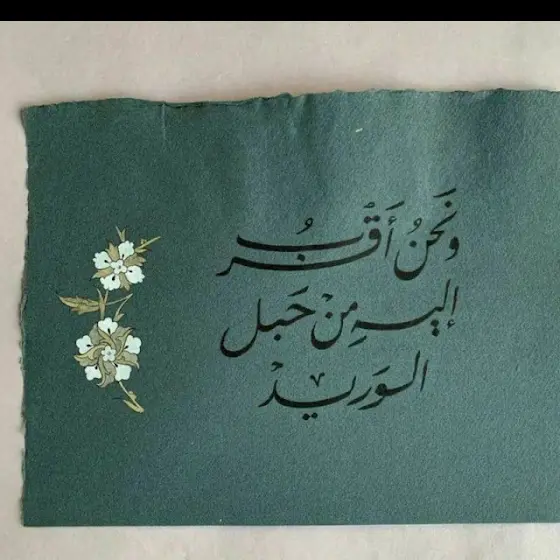 وَنَحْنُ أَقْرَبُ
إليه مِنْ حَبل
الوَريدْ